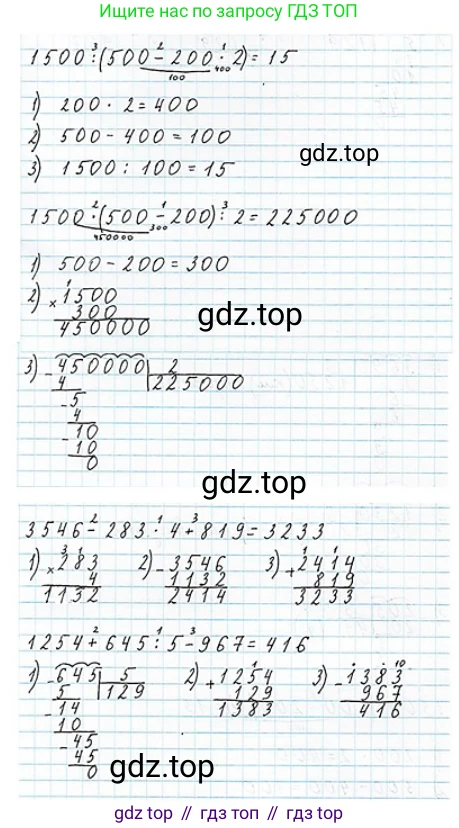 Ищите нас по запросу ГДЗ ТОП
1500 : (500 − 200 · 2) = 15
3 2 1
400
100
1) 200 · 2 = 400
2) 500 − 400 = 100
3) 1500 : 100 = 15
gdz.top
1500 · (500 − 200) : 2 = 225000
2 1 3
300
450000
1) 500 − 200 = 300
2) × 1500
300
450000
gdz.top
3) − 450000 | 2
4 | 225000
− 5
4
− 10
10
0
gdz.top
3546 − 283 · 4 + 819 = 3233
2 1 3
1) × 283
4
1132
2) − 3546
1132
2414
3) + 2414
819
3233
1254 + 645 : 5 − 967 = 416
2 1 3
1) − 645 | 5
5 | 129
− 14
10
− 45
45
0
2) + 1254
129
1383
3) − 1383
967
416
gdz.top
gdz.top // гдз.top // гдз.топ